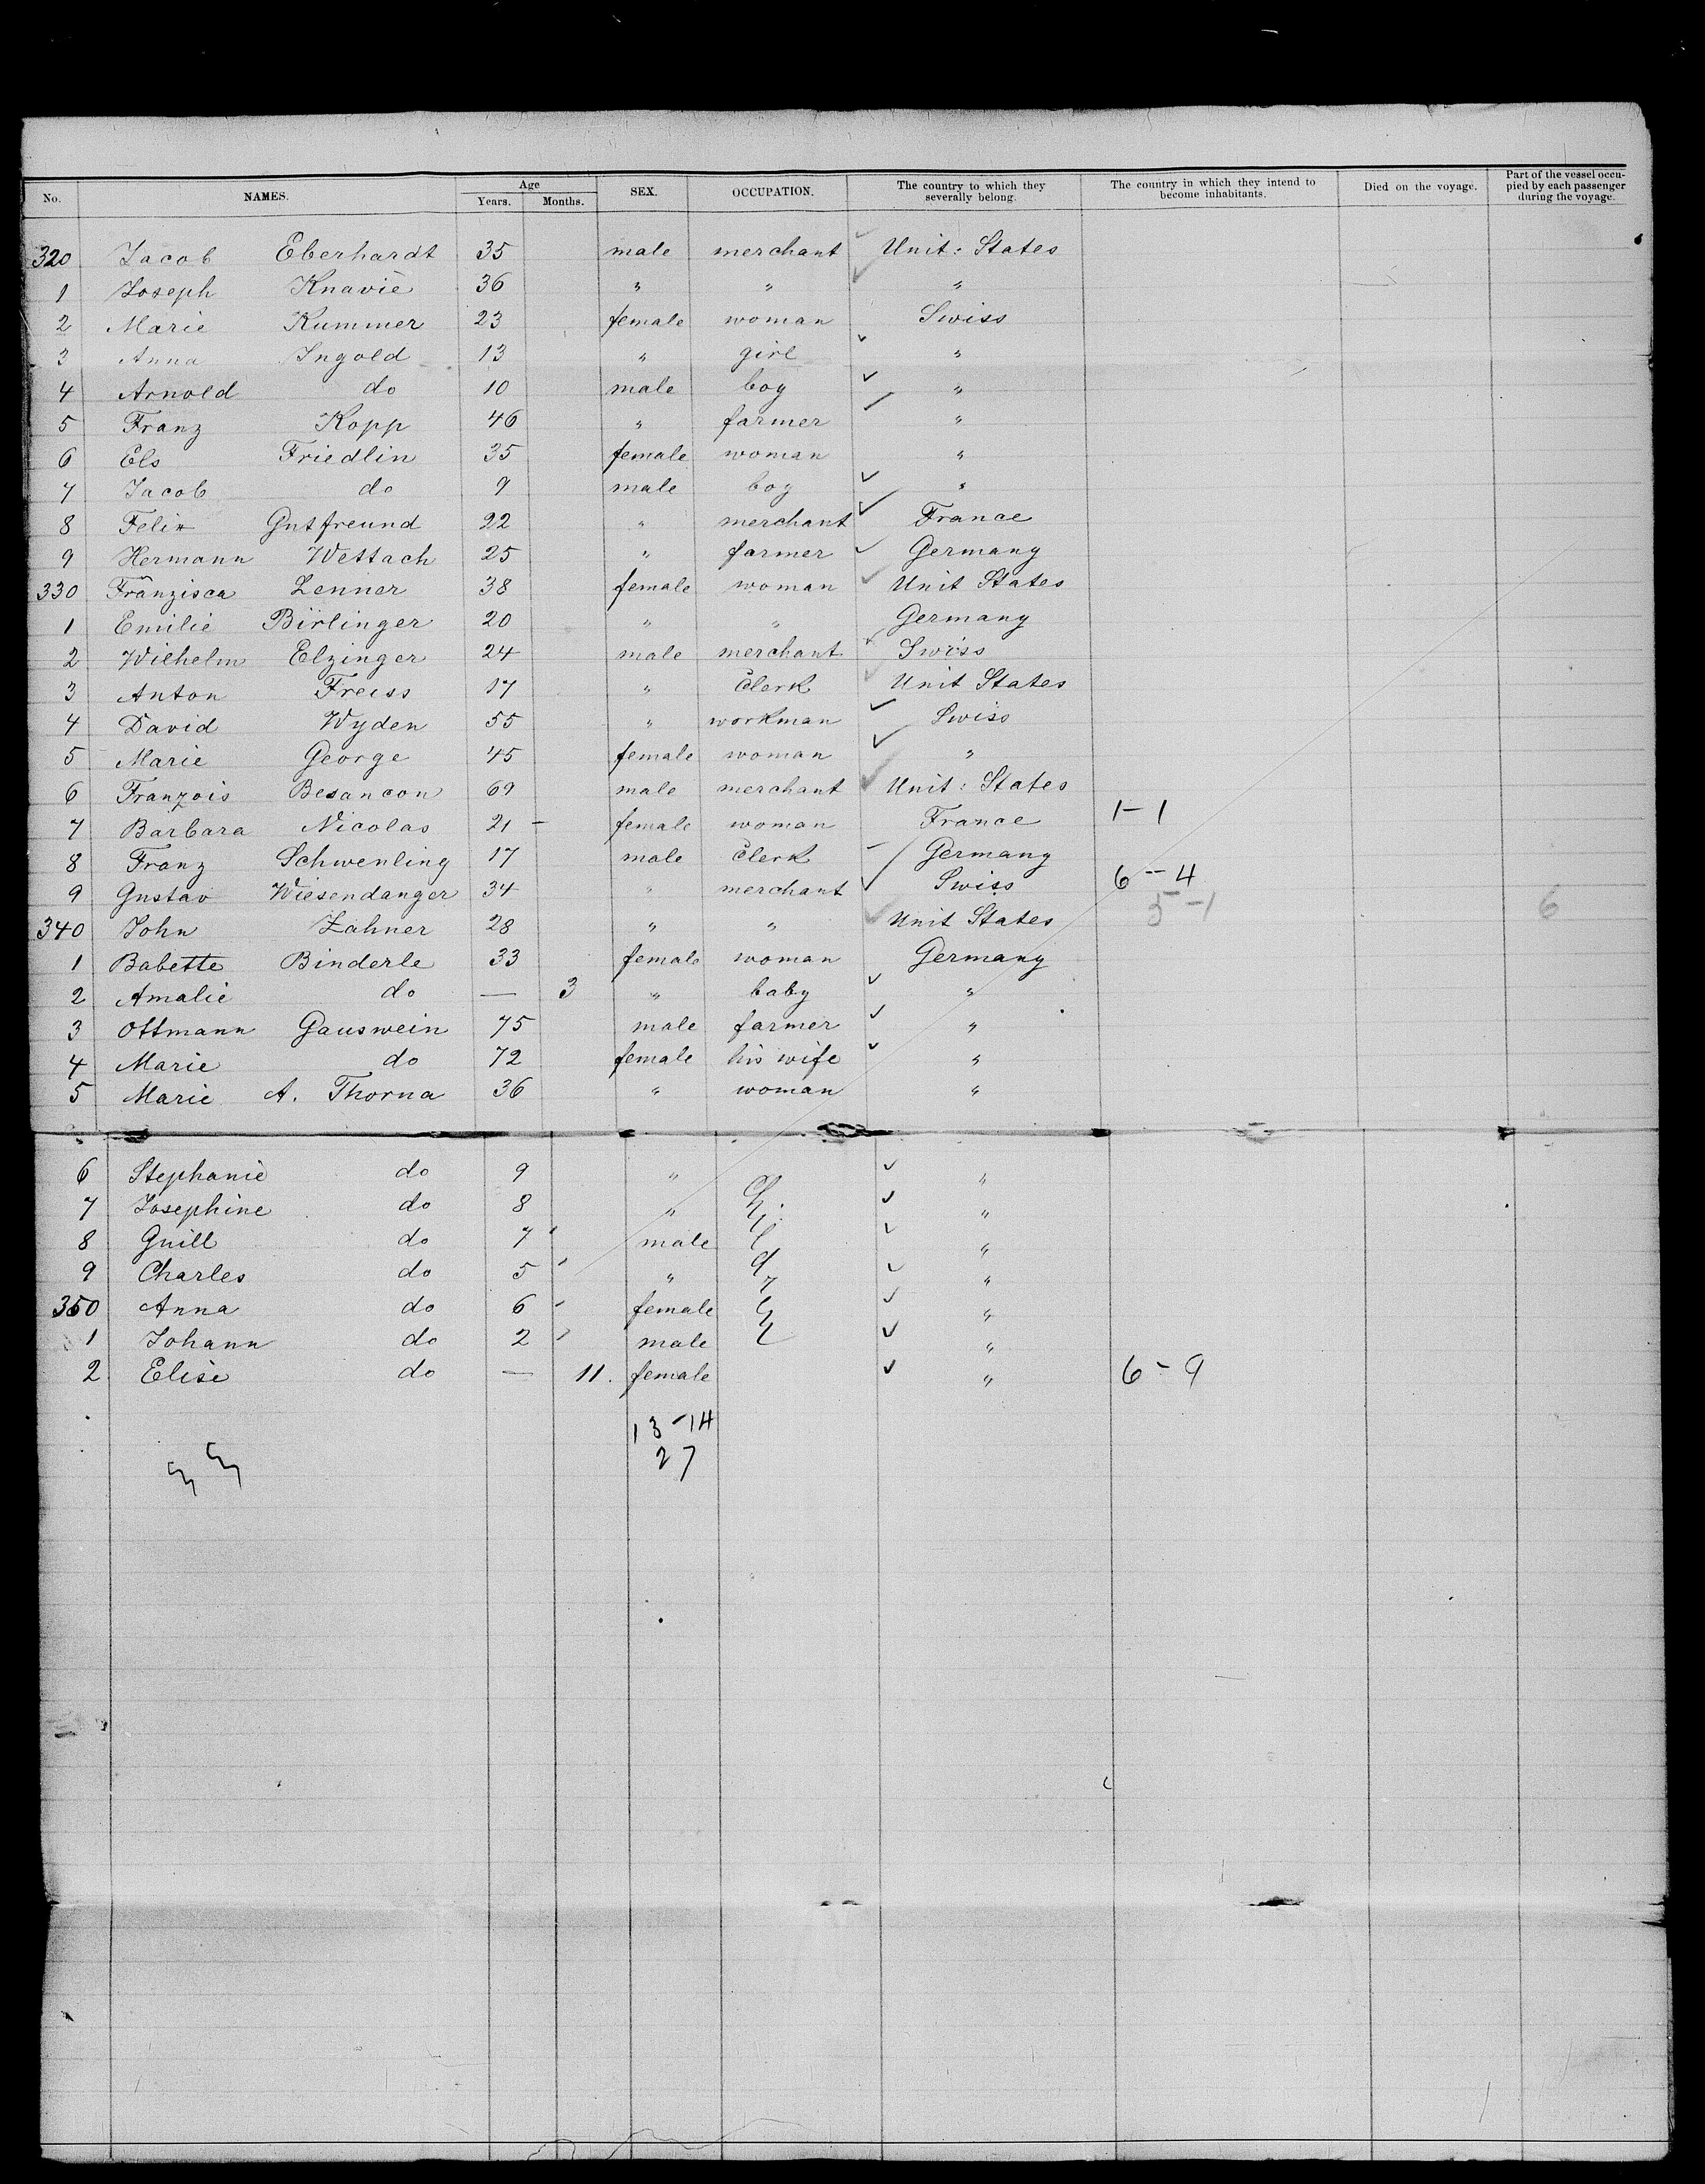 No. NAMES. Age Years. Months. SEX. OCCUPATION. The country to which they severally belong. The country in which they intend to become inhabitants. Died on the voyage. Part of the vessel occupied by each passenger during the voyage.
320 Jacob Eberhardt 35 male merchant Unit: States
1 Joseph Knavie 36 " " "
2 Marie Kummer 23 female woman Swiss
3 Anna Ingold 13 " girl "
4 Arnold do 10 male boy "
5 Franz Kopp 46 " farmer "
6 Els Friedlin 35 female woman "
7 Jacob do 9 male boy "
8 Felix Gutfreund 22 " merchant France
9 Hermann Wettach 25 " farmer Germany
330 Franzisca Zenner 38 female woman Unit States
1 Emilie Birlinger 20 " " Germany
2 Wilhelm Elzinger 24 male merchant Swiss
3 Anton Freiss 17 " Clerk Unit States
4 David Wyden 55 " workman Swiss
5 Marie George 45 female woman "
6 Franzois Besancon 69 male merchant Unit: States
7 Barbara Nicolas 21 – female woman France 1-1
8 Franz Schwenling 17 male Clerk Germany
9 Gustav Wiesendanger 34 " merchant Swiss 6--4
340 John Zahner 28 " " Unit States 5-1 6
1 Babette Binderle 33 female woman Germany
2 Amalie do — 3 " baby "
3 Ottmann Gauswein 75 male farmer "
4 Marie do 72 female his wife "
5 Marie A. Thorna 36 " woman "
6 Stephanie do 9 " "
7 Josephine do 8 " "
8 Guill do 7 male "
9 Charles do 5 " "
350 Anna do 6 female "
1 Johann do 2 male "
2 Elise do — 11. female " 6-9
13-14
27